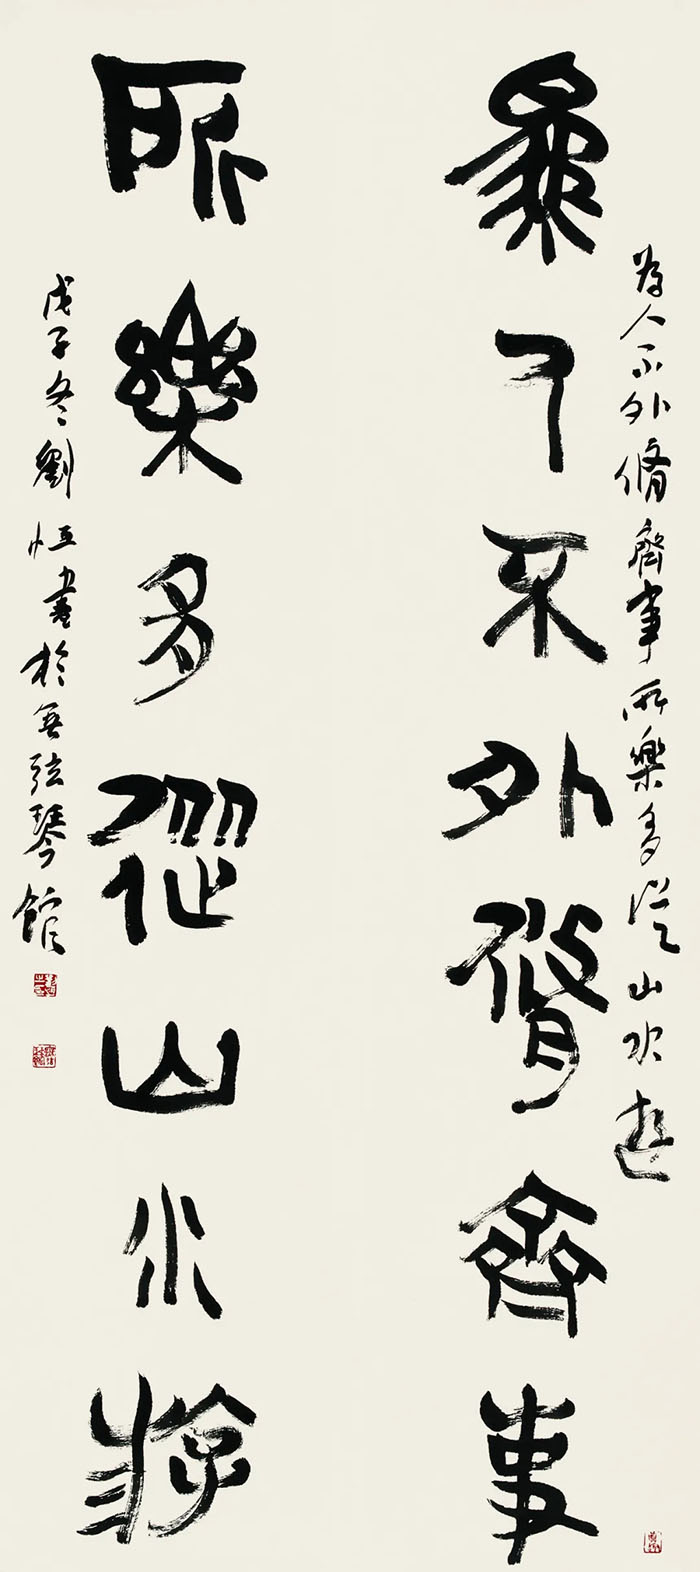 爲人不外脩齊事所樂多從山水遊
爲人不外脩齊事
所樂多從山水游
戊子冬劉恒書於無弦琴館